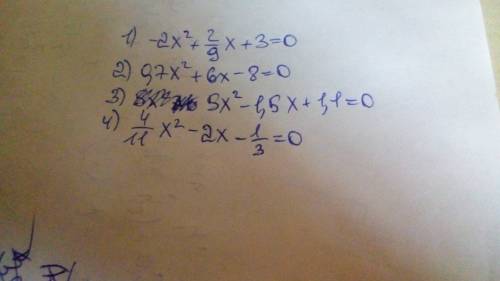 1) -2x²+2/9x+3=0
2) 0,7x²+6x-8=0
3) 5x²-1,5x+1,1=0
4) 4/11x²-2x-1/3=0